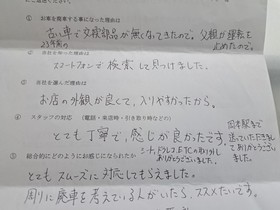 お車を廃車する事になった理由は
古い車で交換部品が無くなってきたので。父親が運転を
23年前の
止めたので。
当社を知った理由は
スマートフォンで検索して見つけました。
③ 当社を選んだ理由は
お店の外観が良くて、入りやすかったから。
④ スタッフの対応（電話・来店時・引き取り時などの）
とても丁寧で、感じが良かったです。
駅まで
送っていただきまして
ありがとうございました。
シート、ドラレコ、ETCの取り外し
ありがとうございました。
⑤ 総合的にどのようにお感じになられたか
とてもスムーズに対応してもらえました。
周りに廃車を考えている人がいたら、ススメたいです。